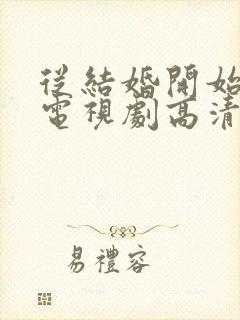 從結婚開始
電視劇高清
易禮容